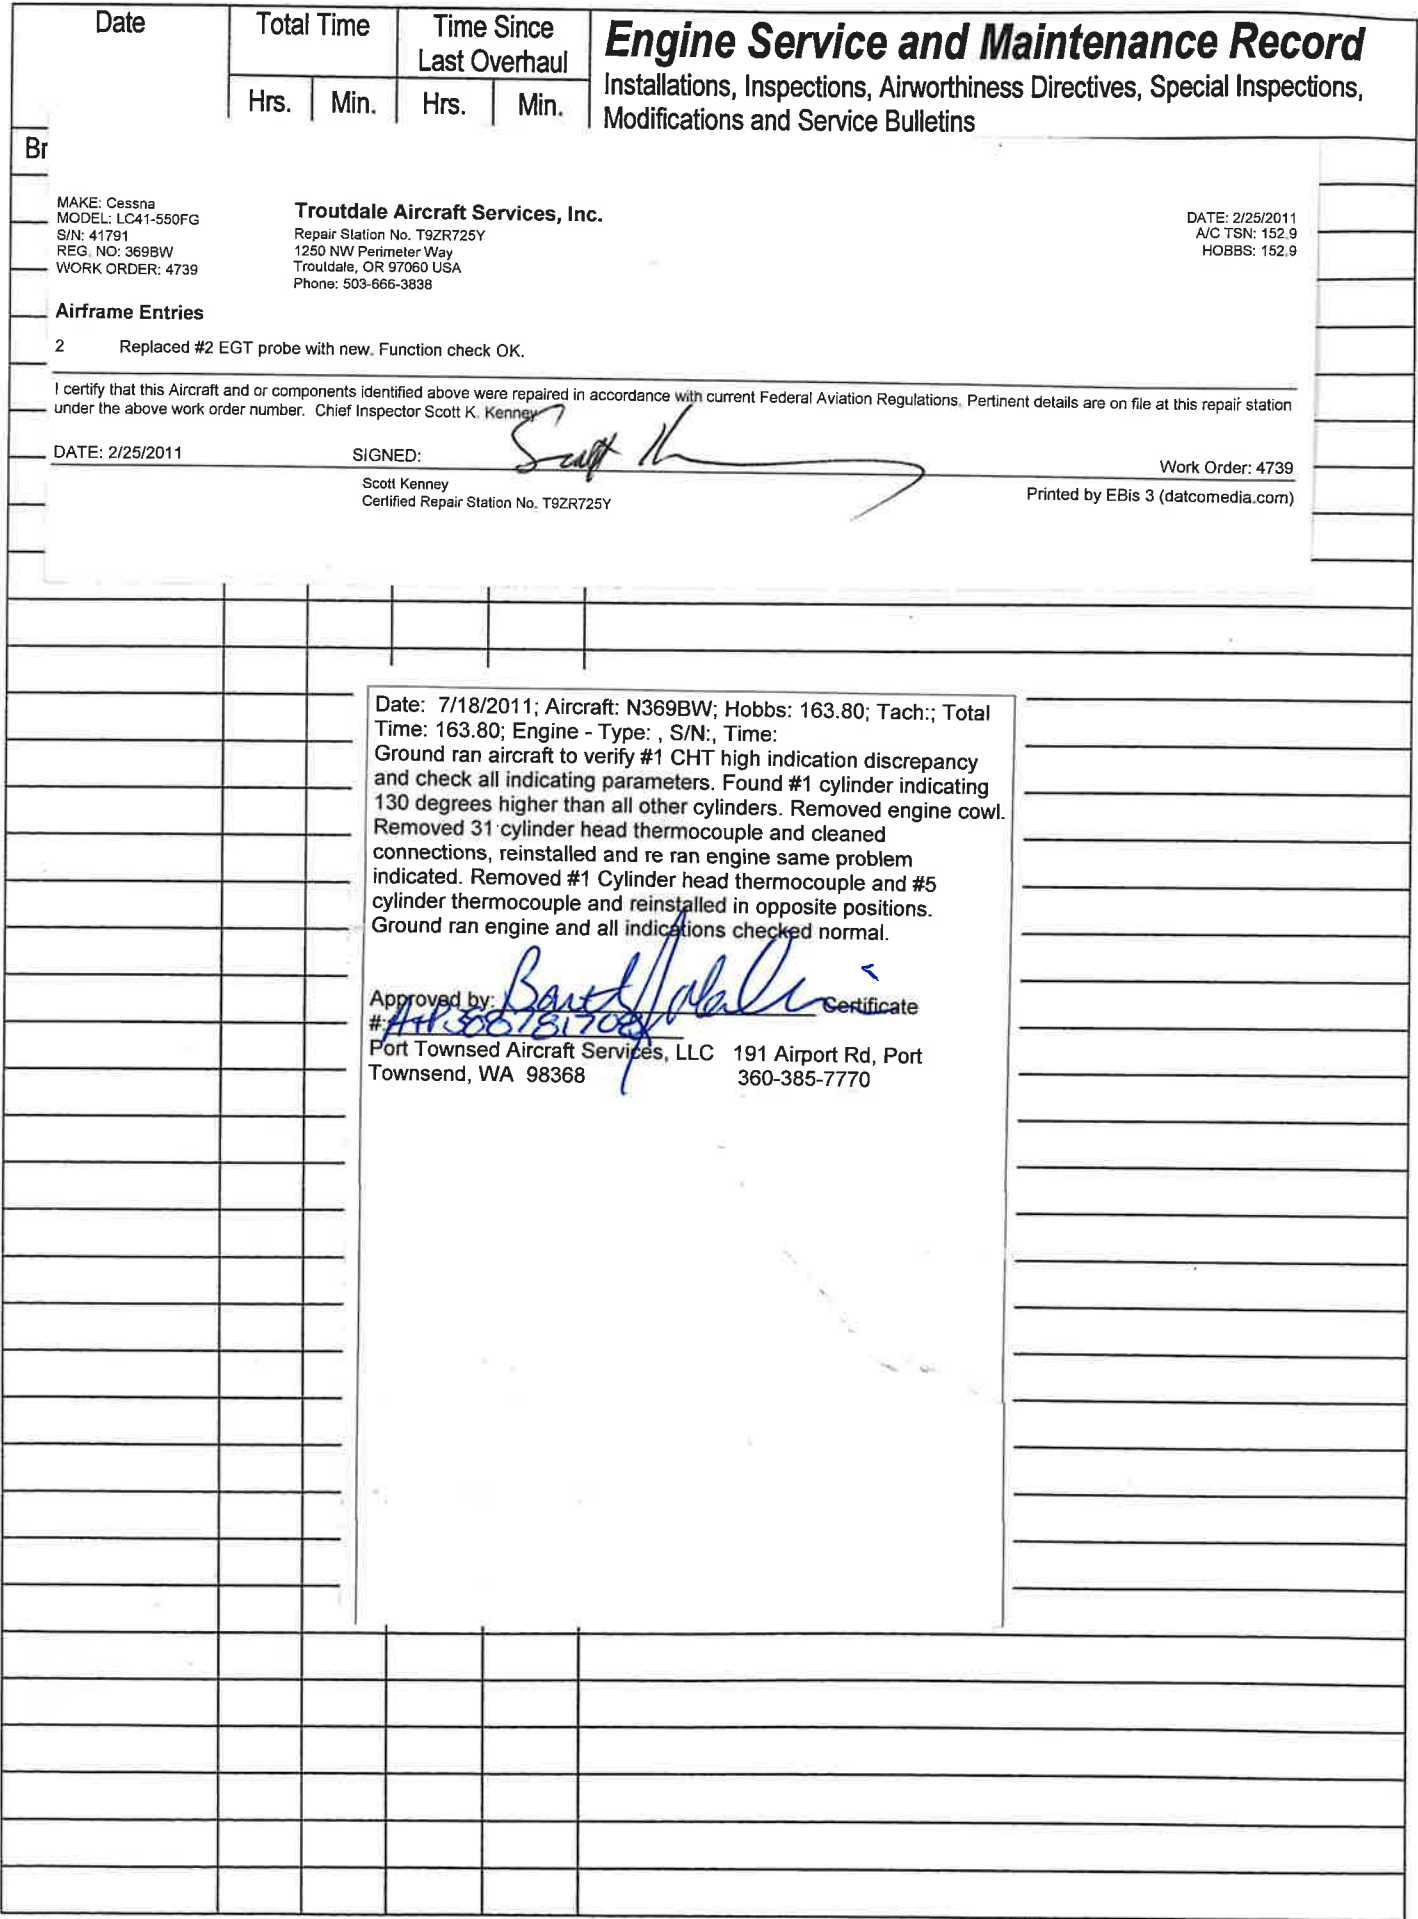 Date
Total Time
Time Since
Last Overhaul
Hrs.
Min.
Hrs.
Min.
Engine Service and Maintenance Record
Installations, Inspections, Airworthiness Directives, Special Inspections,
Modifications and Service Bulletins
Br
MAKE: Cessna
MODEL: LC41-550FG
S/N: 41791
REG. NO: 369BW
WORK ORDER: 4739
Troutdale Aircraft Services, Inc.
Repair Station No. T9ZR725Y
1250 NW Perimeter Way
Troutdale, OR 97060 USA
Phone: 503-666-3838
DATE: 2/25/2011
A/C TSN: 152.9
HOBBS: 152.9
Airframe Entries
2 Replaced #2 EGT probe with new. Function check OK.
I certify that this Aircraft and or components identified above were repaired in accordance with current Federal Aviation Regulations. Pertinent details are on file at this repair station
under the above work order number. Chief Inspector Scott K. Kenney
DATE: 2/25/2011
SIGNED:
Work Order: 4739
Scott Kenney
Certified Repair Station No. T9ZR725Y
Printed by EBis 3 (datcomedia.com)
Date: 7/18/2011; Aircraft: N369BW; Hobbs: 163.80; Tach:; Total
Time: 163.80; Engine - Type: , S/N:, Time:
Ground ran aircraft to verify #1 CHT high indication discrepancy
and check all indicating parameters. Found #1 cylinder indicating
130 degrees higher than all other cylinders. Removed engine cowl.
Removed 31 cylinder head thermocouple and cleaned
connections, reinstalled and re ran engine same problem
indicated. Removed #1 Cylinder head thermocouple and #5
cylinder thermocouple and reinstalled in opposite positions.
Ground ran engine and all indications checked normal.
Approved by: Certificate
#:
Port Townsed Aircraft Services, LLC 191 Airport Rd, Port
Townsend, WA 98368 360-385-7770